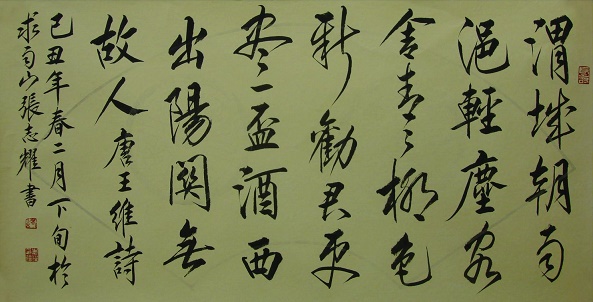 渭城朝雨
浥輕塵客
舍青々柳色
新勸君更
盡一盃酒西
出陽關無
故人 唐王維詩
己丑年春二月下旬於
求雨山張志耀書